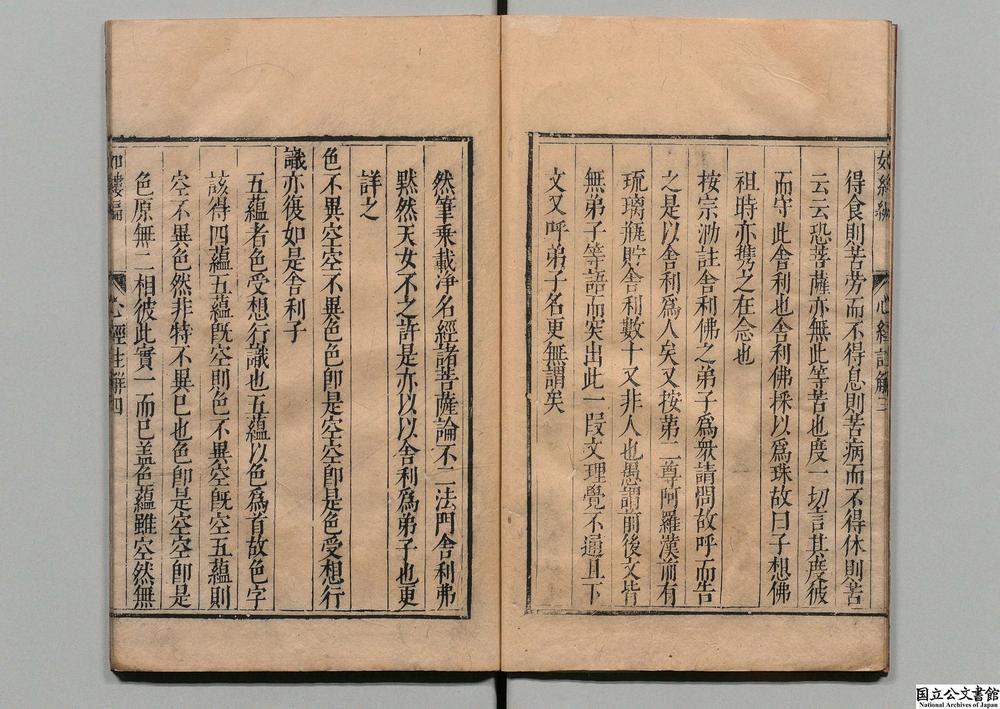 得食則苦勞而不得息則苦病而不得休則苦
云云恐菩薩亦無此等苦也度一切言其度彼
而守此舍利也舍利佛採以爲珠故曰子想佛
祖時亦携之在念也
按宗泐註舍利佛之弟子爲衆請問故呼而告
之是以舍利爲人矣又按第二尊阿羅漢前有
琉璃瓶貯舍利數十又非人也愚謂前後文皆
無弟子等語而突出此一段文理覺不通且下
文又呼弟子名更無謂矣
心經註解三
然筆乗載淨名經諸菩薩論不二法門舎利弗
黙然天女不之許是亦以以舎利爲弟子也更
詳之
色不異空空不異色色卽是空空卽是色受想行
識亦復如是舎利子
五蘊者色受想行識也五蘊以色爲首故色字
該得四蘊五蘊旣空則色不異空旣空五蘊則
空不異色然非特不異已也色卽是空空卽是
色原無二相彼此實一而已盖色蘊雖空然無
心經註解四
国立公文書館
National Archives of Japan